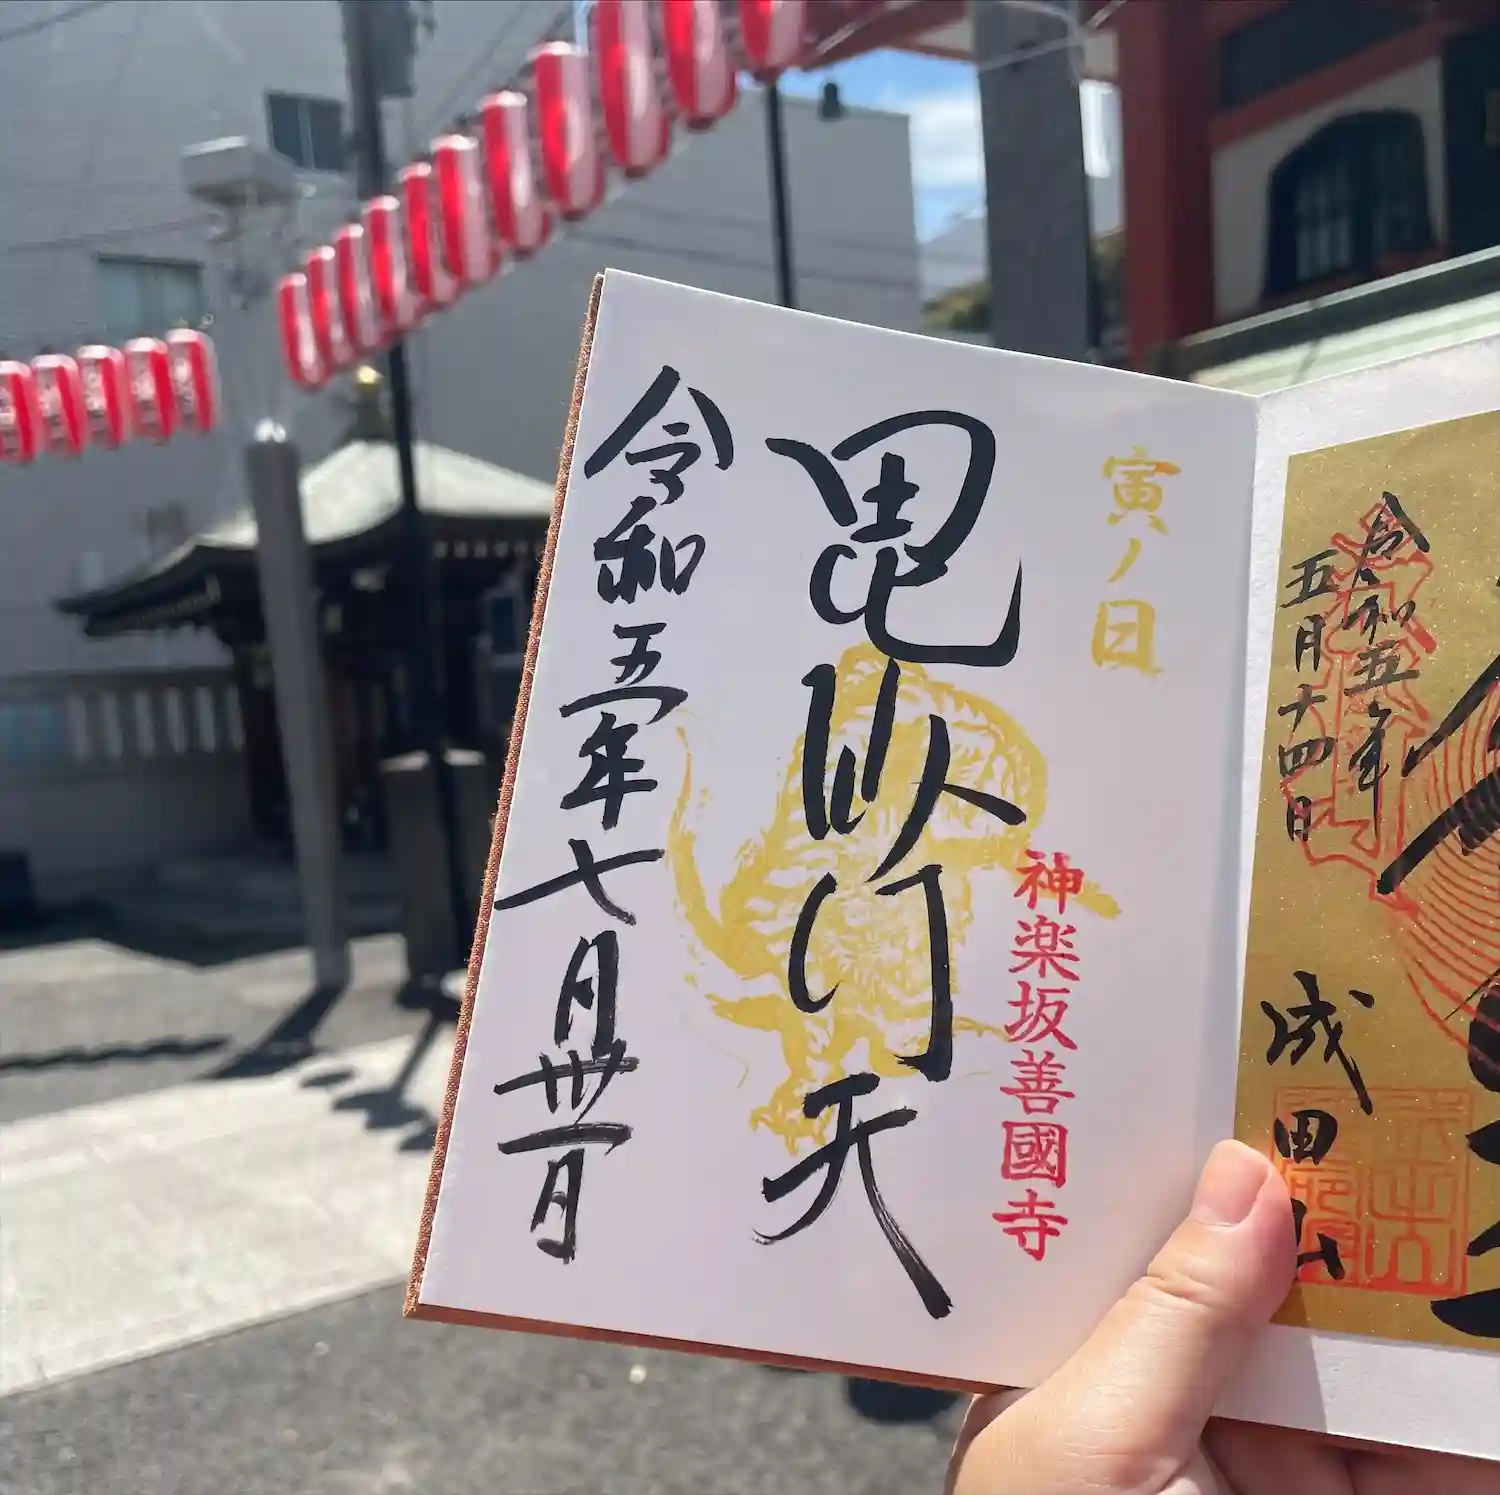 令和五年
五月十四日
成田山
寅ノ日
神楽坂善國寺
毘沙門天
令和五年七月丗一日